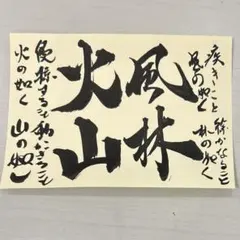 疾きこと
風の如く
徐かなること
林の如く
風林
火山
侵掠すること
火の如く
動かざること
山の如し